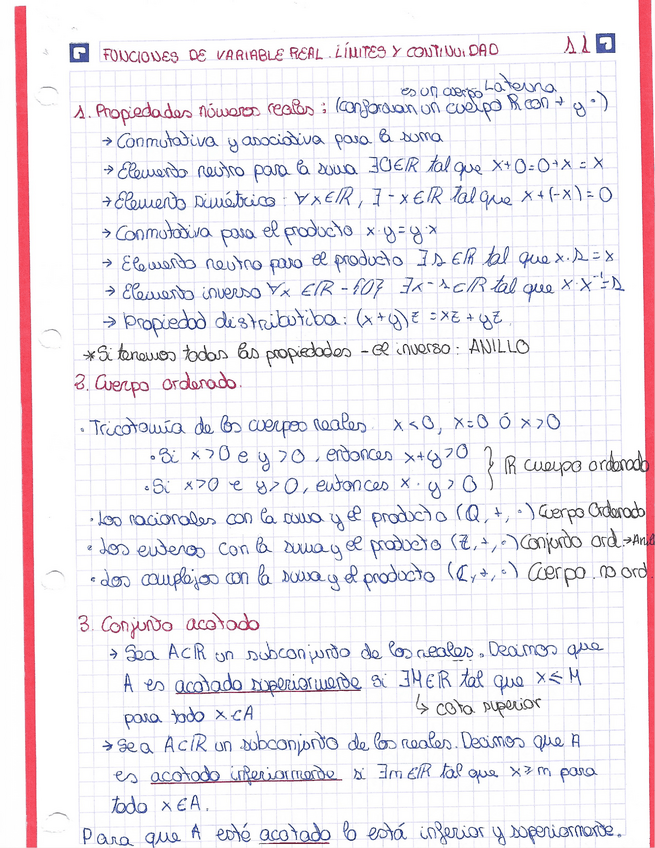 FUNCIONES DE VARIABLE REAL. LÍMITES Y CONTINUIDAD 11
es un cuerpo
1. Propiedades números reales: (conforman un cuerpo R con + y ·)
→ Conmutativa y asociativa para la suma
→ Elemento neutro para la suma ∃0∈ℝ tal que x+0=0+x=x
→ Elemento simétrico: ∀x∈ℝ, ∃-x∈ℝ tal que x+(-x)=0
→ Conmutativa para el producto x·y=y·x
→ Elemento neutro para el producto ∃1∈ℝ tal que x·1=x
→ Elemento inverso ∀x∈ℝ-{0} ∃x⁻¹∈ℝ tal que x·x⁻¹=1
→ Propiedad distributiba: (x+y)z=xz+yz
*Si tenemos todas las propiedades - el inverso: ANILLO
2. Cuerpo ordenado.
· Tricotomía de los cuerpos reales. x<0, x=0 ó x>0
· Si x>0 e y>0, entonces x+y>0
· Si x>0 e y>0, entonces x·y>0
} ℝ cuerpo ordenado
· Los racionales con la suma y el producto (Q,+,·) Cuerpo Ordenado
· Los enteros con la suma y el producto (Z,+,·) Conjunto ord.→
· Los complejos con la suma y el producto (ℂ,+,·) Cuerpo no ord.
3. Conjunto acotado
→ Sea A⊂ℝ un subconjunto de los reales. Decimos que
A es acotado superiormente si ∃M∈ℝ tal que x≤M
↳ cota superior
para todo x∈A
→ Sea A⊂ℝ un subconjunto de los reales. Decimos que A
es acotado inferiormente si ∃m∈ℝ tal que x≥m para
todo x∈A.
Para que A esté acotado lo está inferior y superiormente.